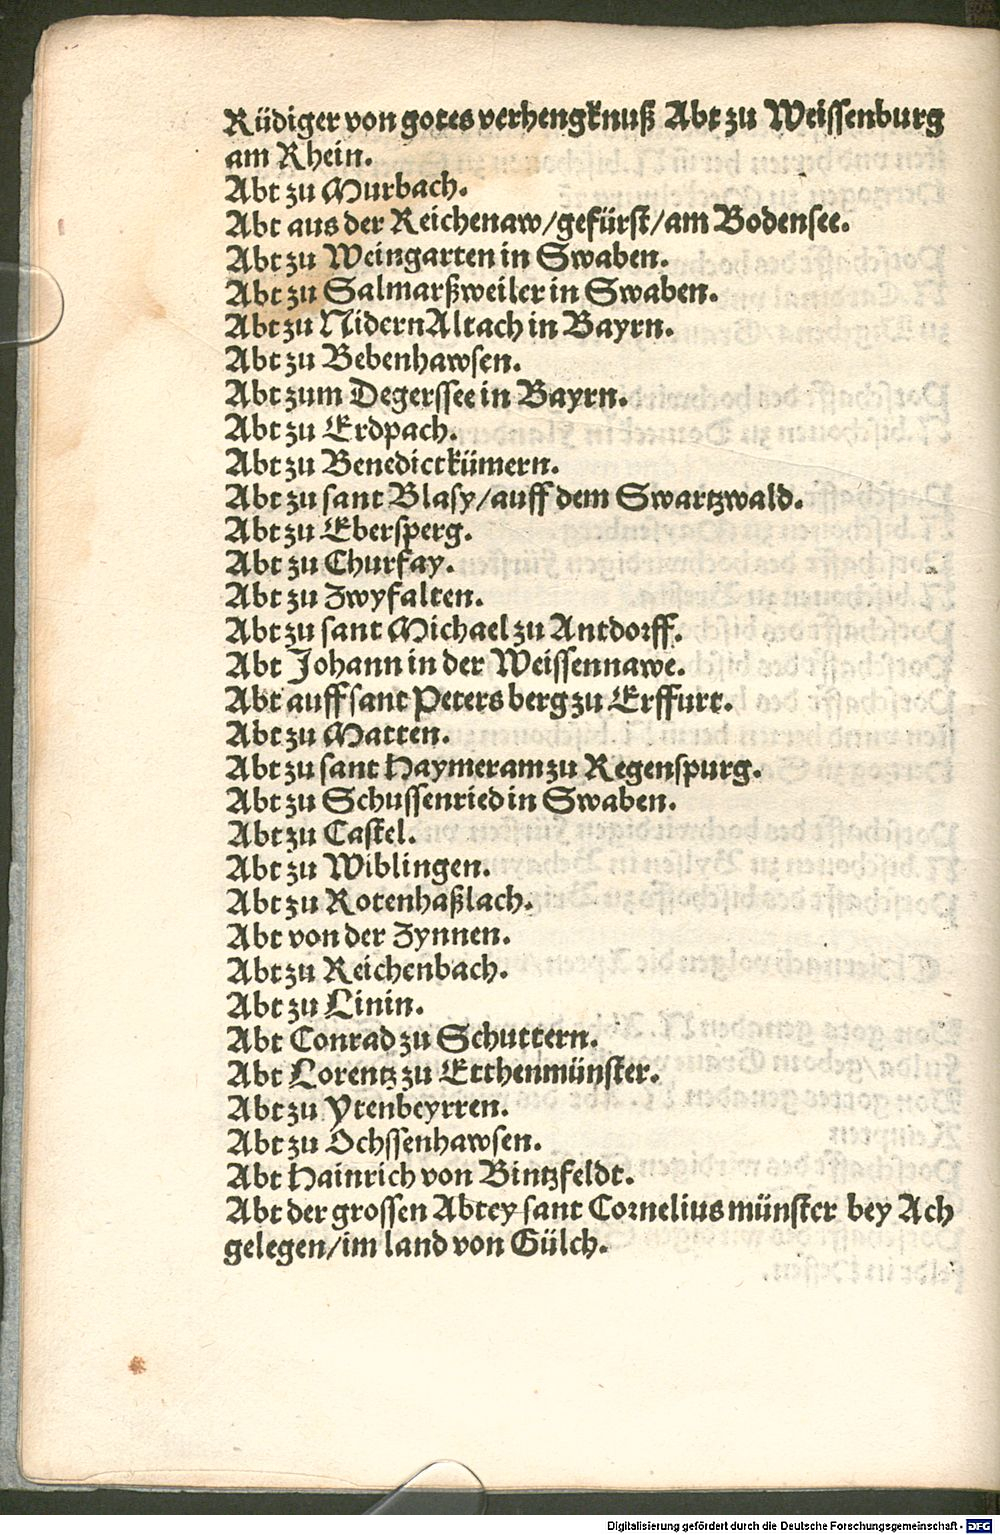 Rüdiger von gotes verhengknuß Abt zu Weissenburg
am Rhein.
Abt zu Murbach.
Abt aus der Reichenaw/gefürst/am Bodensee.
Abt zu Weingarten in Swaben.
Abt zu Salmarßweiler in Swaben.
Abt zu NidernAltach in Bayrn.
Abt zu Bebenhawsen.
Abt zum Degerssee in Bayrn.
Abt zu Erdpach.
Abt zu Benedictkümern.
Abt zu sant Blasy/auff dem Swartzwald.
Abt zu Ebersperg.
Abt zu Churfay.
Abt zu Zwyfalten.
Abt zu sant Michael zu Antdorff.
Abt Johann in der Weissennawe.
Abt auff sant Peters berg zu Erffurt.
Abt zu Matten.
Abt zu sant Haymeram zu Regenspurg.
Abt zu Schussenried in Swaben.
Abt zu Castel.
Abt zu Wiblingen.
Abt zu Rotenhaßlach.
Abt von der Zynnen.
Abt zu Reichenbach.
Abt zu Linin.
Abt Conrad zu Schuttern.
Abt Lorentz zu Etthenmünster.
Abt zu Ytenbeyrren.
Abt zu Ochssenhawsen.
Abt Hainrich von Bintzfeldt.
Abt der grossen Abtey sant Cornelius münster bey Ach
gelegen/im land von Gülch.
Digitalisierung gefördert durch die Deutsche Forschungsgemeinschaft - DFG